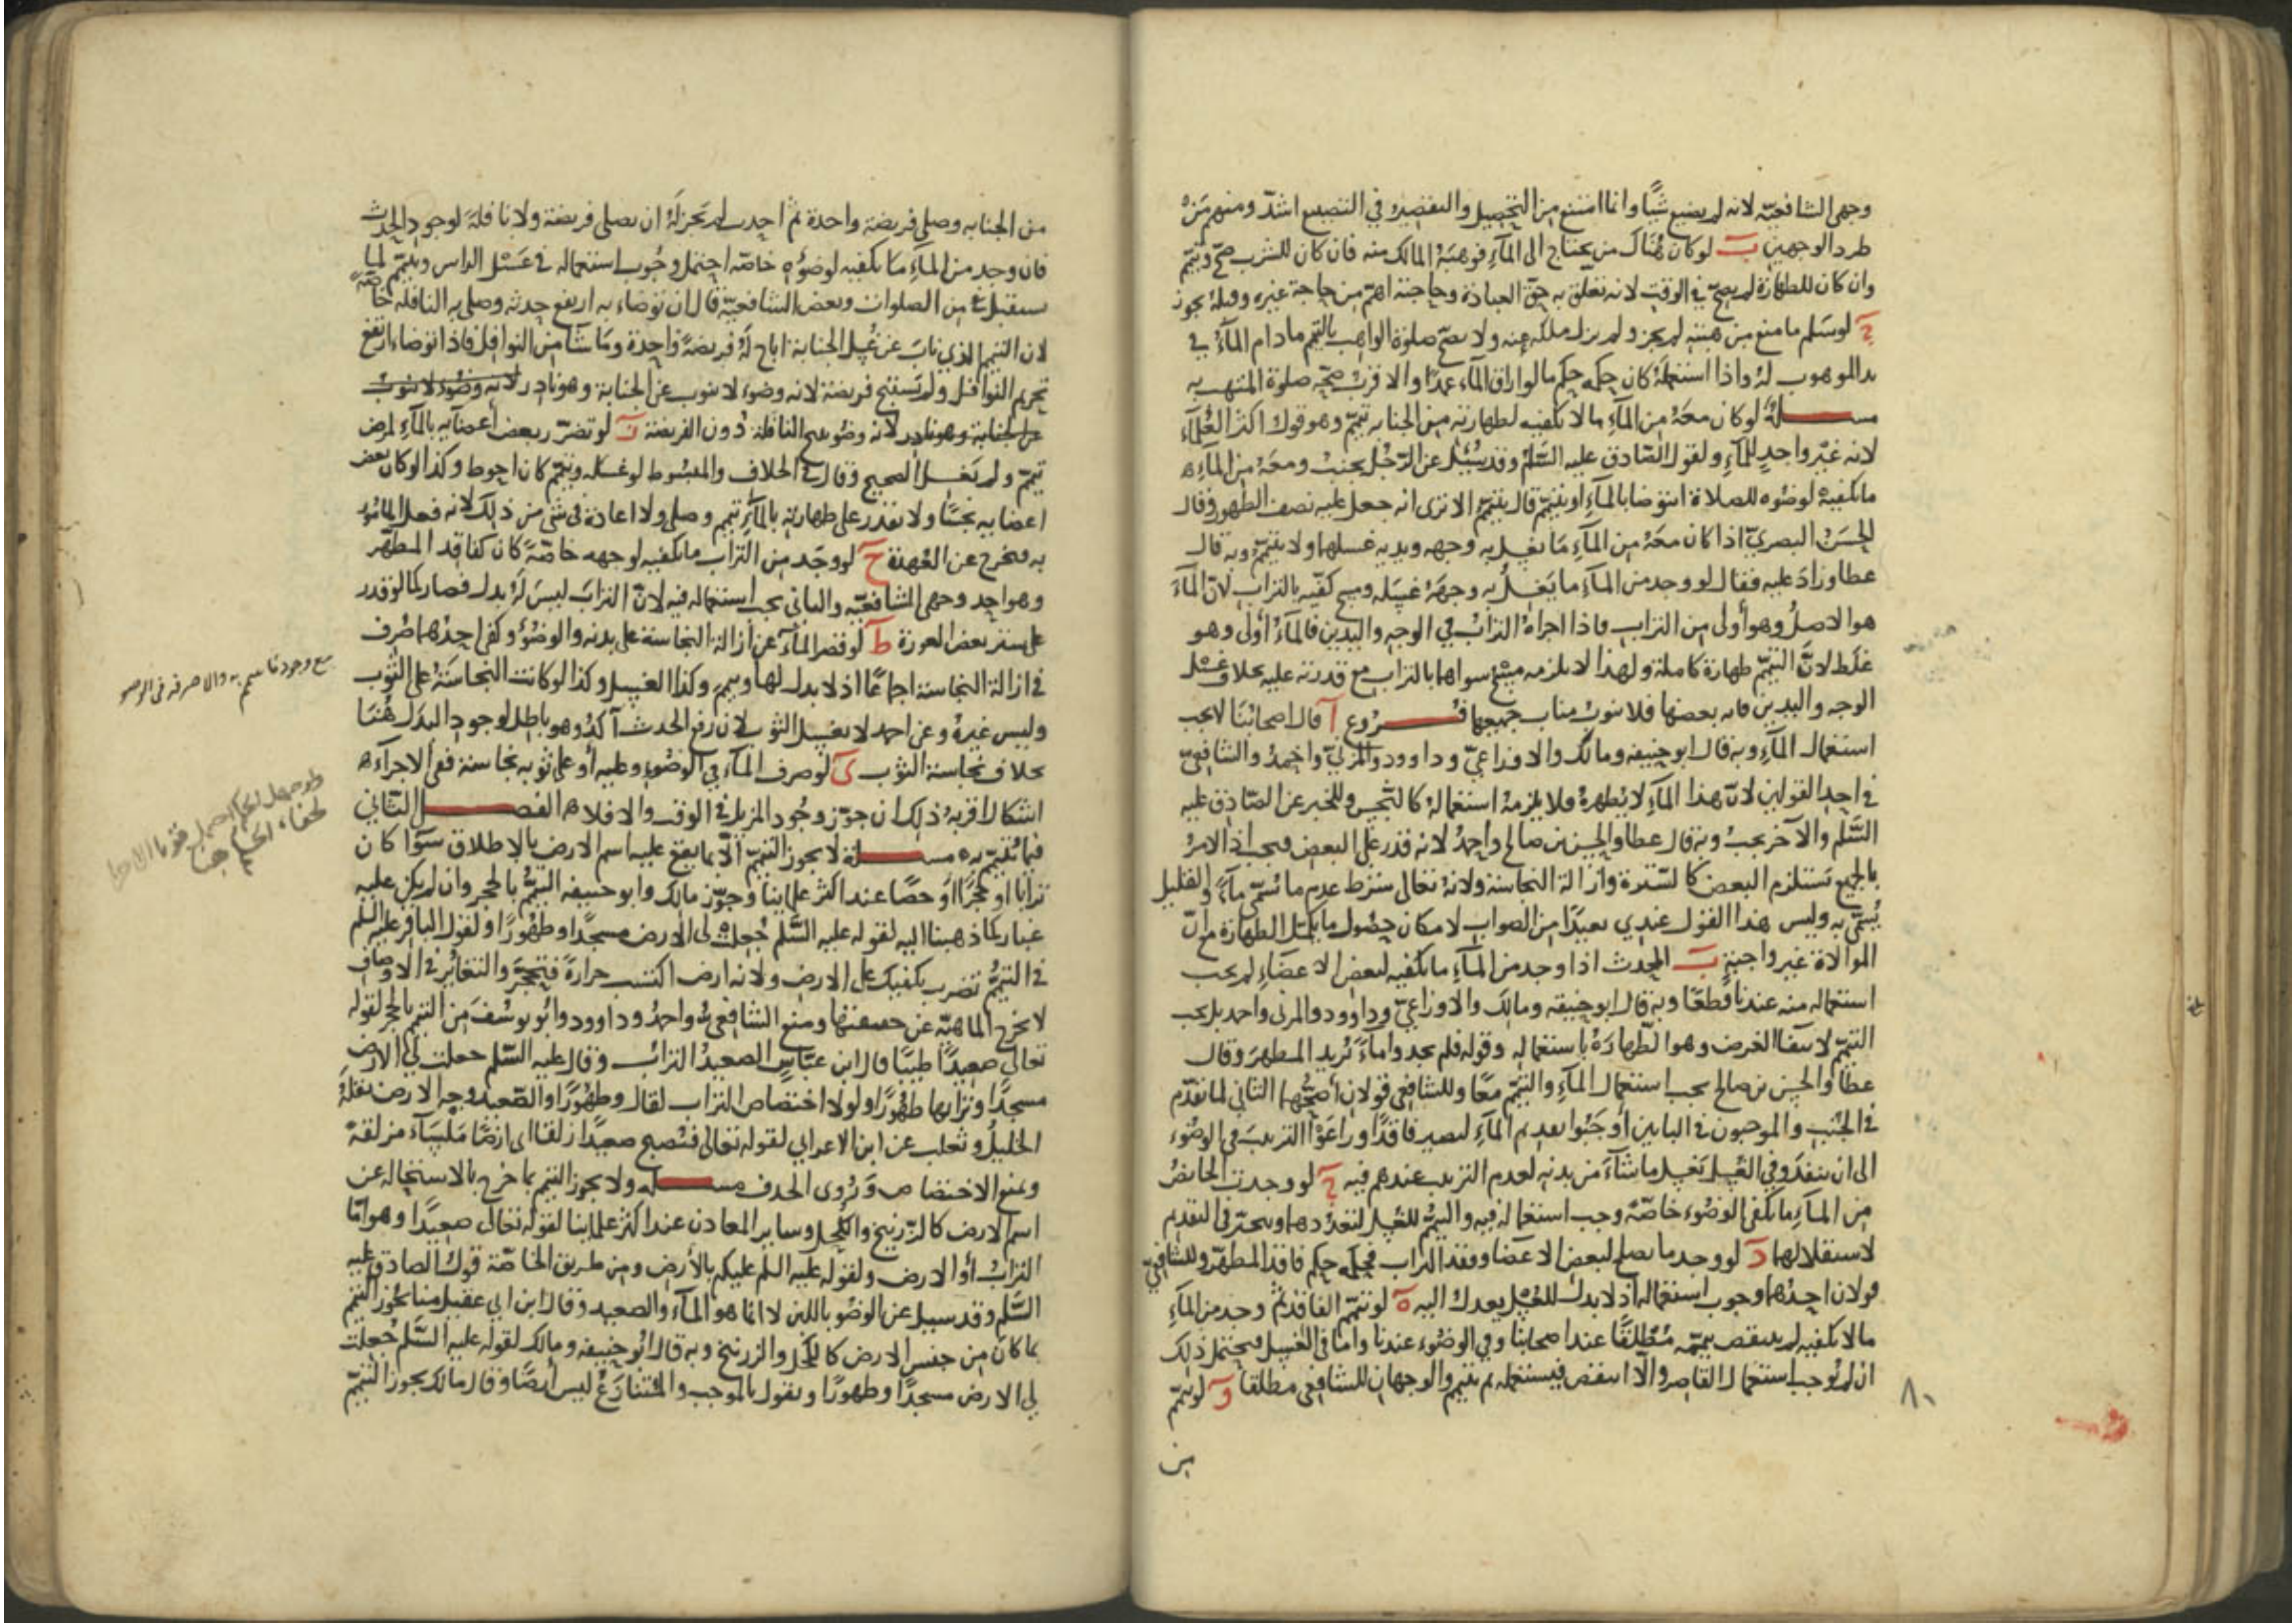 وجهي الشافعية لانه لم يضيع شيئا وانما امتنع من التحصيل والتقصير في التضييع اشد ومنهم من
طرد الوجهين ب لو كان هناك من يحتاج الى الماء فوهبه المالك منه فان كان للشرب صح وتيمم
وان كان للطهارة لم يصح في الوقت لانه تعلق به حق العبادة وحاجته اهم من حاجة غيره وقبله يجوز
ج لو سلم ما منع من هبته لم يجز ولم يزل ملكه عنه ولا تصح صلوة الواهب بالتيمم ما دام الماء في
يد الموهوب له واذا استعمله كان حكمه حكم ما لو اراق الماء عمدا والاقرب صحة صلوة المتهب به
مسئلة لو كان معه من الماء ما لا يكفيه لطهارته من الجنابه تيمم وهو قول اكثر العلماء
لانه غير واجد للماء ولقول الصادق عليه السلم وقد سئل عن الرجل يجنب ومعه من الماء
ما يكفيه لوضوه للصلاة ايتوضا بالماء او يتيمم قال يتيمم الا ترى انه جعل عليه نصف الطهور وقال
الحسن البصري اذا كان معه من الماء ما يغسل به وجهه ويديه غسلهما ولا يتيمم وبه قال
عطا وزاد عليه فقال لو وجد من الماء ما يغسل به وجهه غسله ومسح كفيه بالتراب لان الماء
هو الاصل وهو أولى من التراب فاذا اجزاه التراب في الوجه واليدين فالماء أولى وهو
غلط لان التيمم طهارة كاملة ولهذا لا يلزمه مسح سواهما بالتراب مع قدرته عليه بخلاف غسل
الوجه واليدين فانه بعضها فلا ينوب مناب جميعها فروع ا قال اصحابنا لا يجب
استعمال الماء وبه قال ابو حنيفه ومالك والاوزاعي وداوود والمزني واحمد والشافعي
في احد القولين لان هذا الماء لا يطهره فلا يلزمه استعماله كالنجس وللخبر عن الصادق عليه
السلم والآخر يجب وبه قال عطا والحسن بن صالح واحمد لانه قدر على البعض فيجب اذ الامر
بالجميع يستلزم البعض كالسترة وازالة النجاسة ولانه تعالى شرط عدم ما يسمى ماء والقليل
يسمى به وليس هذا القول عندي بعيدا من الصواب لامكان حصول ما يكمل الطهارة مع ان
الموالاة غير واجبة ب المحدث اذا وجد من الماء ما يكفيه لبعض الاعضاء لم يجب
استعماله منه عندنا قطعا وبه قال ابو حنيفه ومالك والاوزاعي وداوود والمزني واحمد بل يجب
التيمم لانتفا الغرض وهو الطهارة باستعماله وقوله فلم تجدوا ماء يريد المطهر وقال
عطا والحسن بن صالح يجب استعمال الماء والتيمم معا وللشافعي قولان أصحهما الثاني لما تقدم
في الجنب والموجبون في البابين أوجبوا تقديم الماء ليصير فاقدا وراعوا الترتيب في الوضوء
الى ان ينفد وفي الغسل يغسل ما شاء من بدنه لعدم الترتيب عندهم فيه ج لو وجدت الحائض
من الماء ما يكفي الوضوء خاصة وجب استعماله فيه والتيمم للغسل لتعددهما ويتخير في التقديم
لاستقلالهما د لو وجد ما يصلح لبعض الاعضا وفقد التراب فحكمه حكم فاقد المطهر وللشافعي
قولان احدهما وجوب استعماله اذ لا بدل للغسل يعدل اليه ه لو تيمم الفاقد ثم وجد من الماء
ما لا يكفيه لم ينتقض تيممه مطلقا عند اصحابنا وفي الوضوء عندنا واما في الغسل فيحتمل ذلك
ان لم نوجب استعمال القاصر والا انتقض فيستعمله ثم يتيمم والوجهان للشافعي مطلقا و لو تيمم
من
٨٠
من الجنابه وصلى فريضة واحدة ثم احدث لم يجز له ان يصلي فريضة ولا نافلة لوجود الحدث
فان وجد من الماء ما يكفيه لوضوئه خاصة احتمل وجوب استعماله في غسل الراس ويتيمم لما
يستقبل من الصلوات وبعض الشافعية قال ان توضاء به ارتفع حدثه وصلى به النافلة خاصة
لان التيمم الذي ناب عن غسل الجنابة اباح له فريضة واحدة وما شا من النوافل فاذا توضاء ارتفع
تحريم النوافل ولم يستبح فريضة لانه وضوء لا ينوب عن الجنابة وهو نادر لانه وضوء لا ينوب
عن الجنابة وهو نادر لانه وضوء يبيح النافلة دون الفريضة ز لو تضرر بعض أعضائه بالماء لمرض
تيمم ولم يغسل الصحيح وقال في الخلاف والمبسوط لو غسله وتيمم كان احوط وكذا لو كان بعض
اعضايه نجسا ولا يقدر على طهارته بالماء تيمم وصلى ولا اعادة في شئ من ذلك لانه فعل المامور
به فخرج عن العهدة ح لو وجد من التراب ما يكفيه لوجهه خاصة كان كفاقد المطهر
وهو احد وجهي الشافعية والثاني يجب استعماله فيه لان التراب ليس له بدل فصار كما لو قدر
على ستر بعض العورة ط لو قصر الماء عن ازالة النجاسة على بدنه والوضؤ وكفى احدهما صرف
في ازالة النجاسة اجماعا اذ لا بدل لها وتيمم وكذا الغسل وكذا لو كانت النجاسة على الثوب
وليس غيره وعن احمد لا يغسل الثوب لان رفع الحدث آكد وهو باطل لوجود البدل هنا
بخلاف نجاسة الثوب ى لو صرف الماء في الوضوء وعليه أو على ثوبه نجاسة ففي الاجزاء
اشكال اقربه ذلك ان جوز وجود المزيل في الوقت والا فلا الفصل الثاني
فيما يتيمم به مسئلة لا يجوز التيمم الا بما يقع عليه اسم الارض بالاطلاق سوا كان
ترابا او حجرا او حصا عند اكثر علماينا وجوز مالك وابو حنيفه التيمم بالحجر وان لم يكن عليه
غبار كما ذهبنا اليه لقوله عليه السلم جعلت لي الارض مسجدا وطهورا ولقول الباقر عليه السلم
في التيمم تضرب بكفيك على الارض ولانه ارض اكتسب حرارة فتحجر والتغاير في الاوصاف
لا يخرج الماهية عن حقيقتها ومنع الشافعي واحمد وداوود وابو يوسف من التيمم بالحجر لقوله
تعالى صعيدا طيبا قال ابن عباس الصعيد التراب وقال عليه السلم جعلت لي الارض
مسجدا وترابها طهورا ولولا اختصاص التراب لقال وطهورا والصعيد وجه الارض نقله
الخليل وثعلب عن ابن الاعرابي لقوله تعالى فتصبح صعيدا زلقا اى ارضا ملساء مزلقة
ونمنع الاختصاص وروى الحذف مسئلة ولا يجوز التيمم بما خرج بالاستحالة عن
اسم الارض كالزرنيخ والكحل وساير المعادن عند اكثر علماينا لقوله تعالى صعيدا وهو اما
التراب أو الارض ولقوله عليه السلم عليكم بالأرض ومن طريق الخاصة قول الصادق عليه
السلم وقد سيل عن الوضو باللبن لا انما هو الماء والصعيد وقال ابن ابي عقيل منا يجوز التيمم
بما كان من جنس الارض كالكحل والزرنيخ وبه قال ابو حنيفه ومالك لقوله عليه السلم جعلت
لي الارض مسجدا وطهورا ونقول بالموجب والمتنازع ليس أرضا وقال مالك يجوز التيمم
مع وجود ما يتيمم به والا صرفه في الوضو